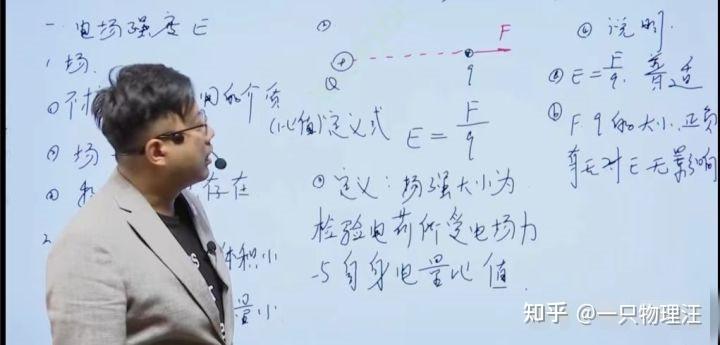 一 电场强度 E
1 场.
的介质
场
存在
2
体积小
量小
Q
q
F
(比值)定义式 E = F/q
定义: 场强大小为
检验电荷所受电场力
与自身电量比值.
说明.
ⓐ E = F/q. 普适
ⓑ F. q 的大小. 正负
有无对 E 无影响
知乎 @一只物理汪